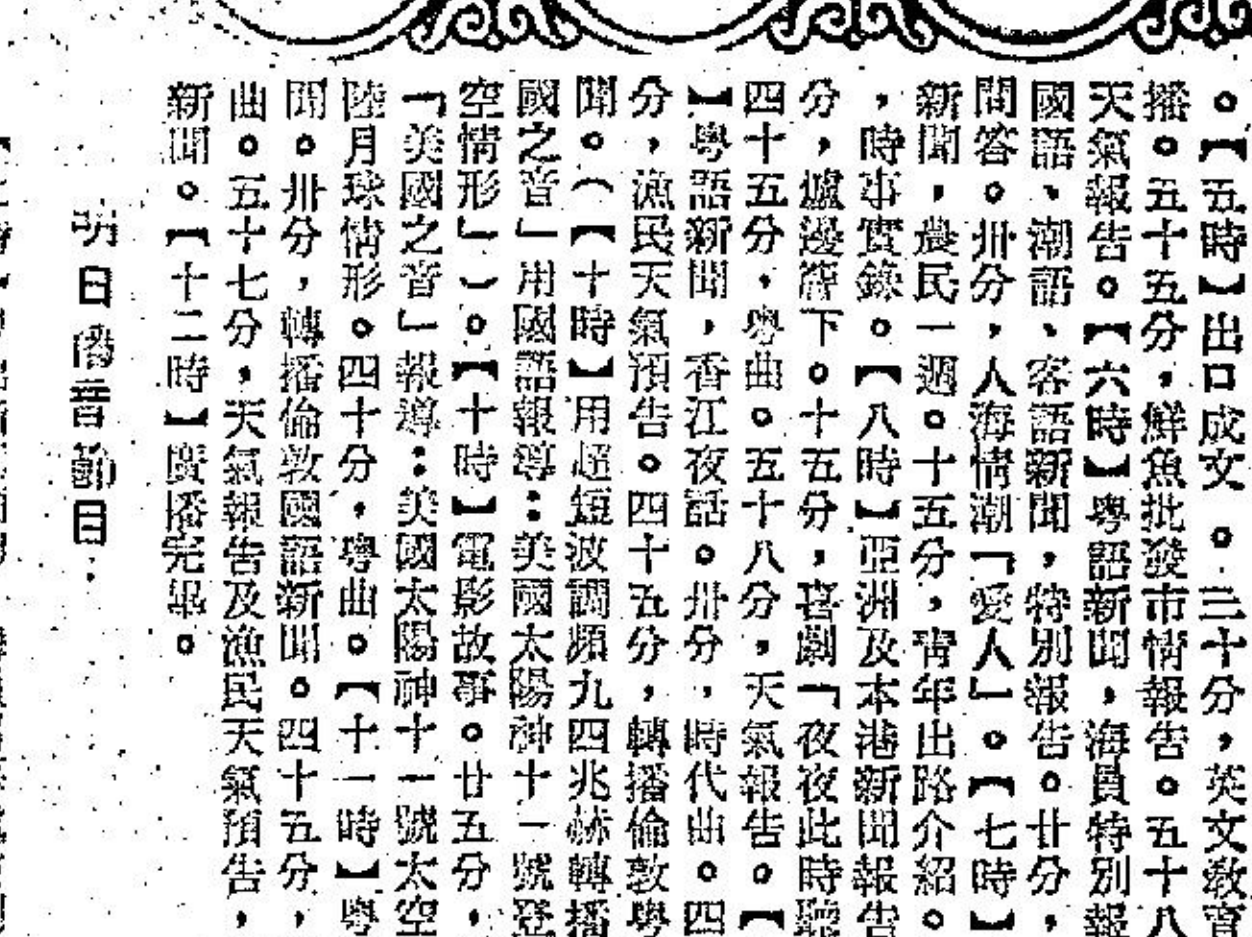 。【五時】出口成文。三十分，英文教育
播。五十五分，鮮魚批發市情報告。五十八
天氣報告。【六時】粵語新聞，海員特別報
國語、潮語、客語新聞，特別報告。廿分，
問答。卅分，人海情潮「愛人」。【七時】
新聞，農民一週。十五分，青年出路介紹。
，時事實錄。【八時】亞洲及本港新聞報告
分，爐邊簷下。十五分，喜劇「夜夜此時聽
四十五分，粵曲。五十八分，天氣報告。【
】粵語新聞，香江夜話。卅分，時代曲。四
分，漁民天氣預告。四十五分，轉播倫敦粵
聞。（【十時】用超短波調頻九四兆赫轉播
國之音」用國語報導：美國太陽神十一號登
空情形」）。【十時】電影故事。廿五分，
「美國之音」報導：美國太陽神十一號太空
陸月球情形。四十分，粵曲。【十一時】粵
聞。卅分，轉播倫敦國語新聞。四十五分，
曲。五十七分，天氣報告及漁民天氣預告，
新聞。【十二時】廣播完畢。
明日播音節目：